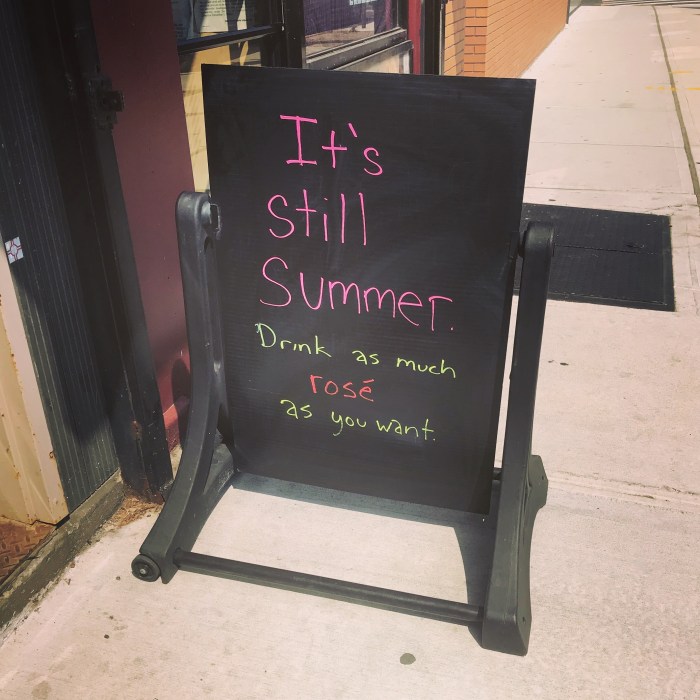 It's
Still
Summer.
Drink as much
rosé
as you want.